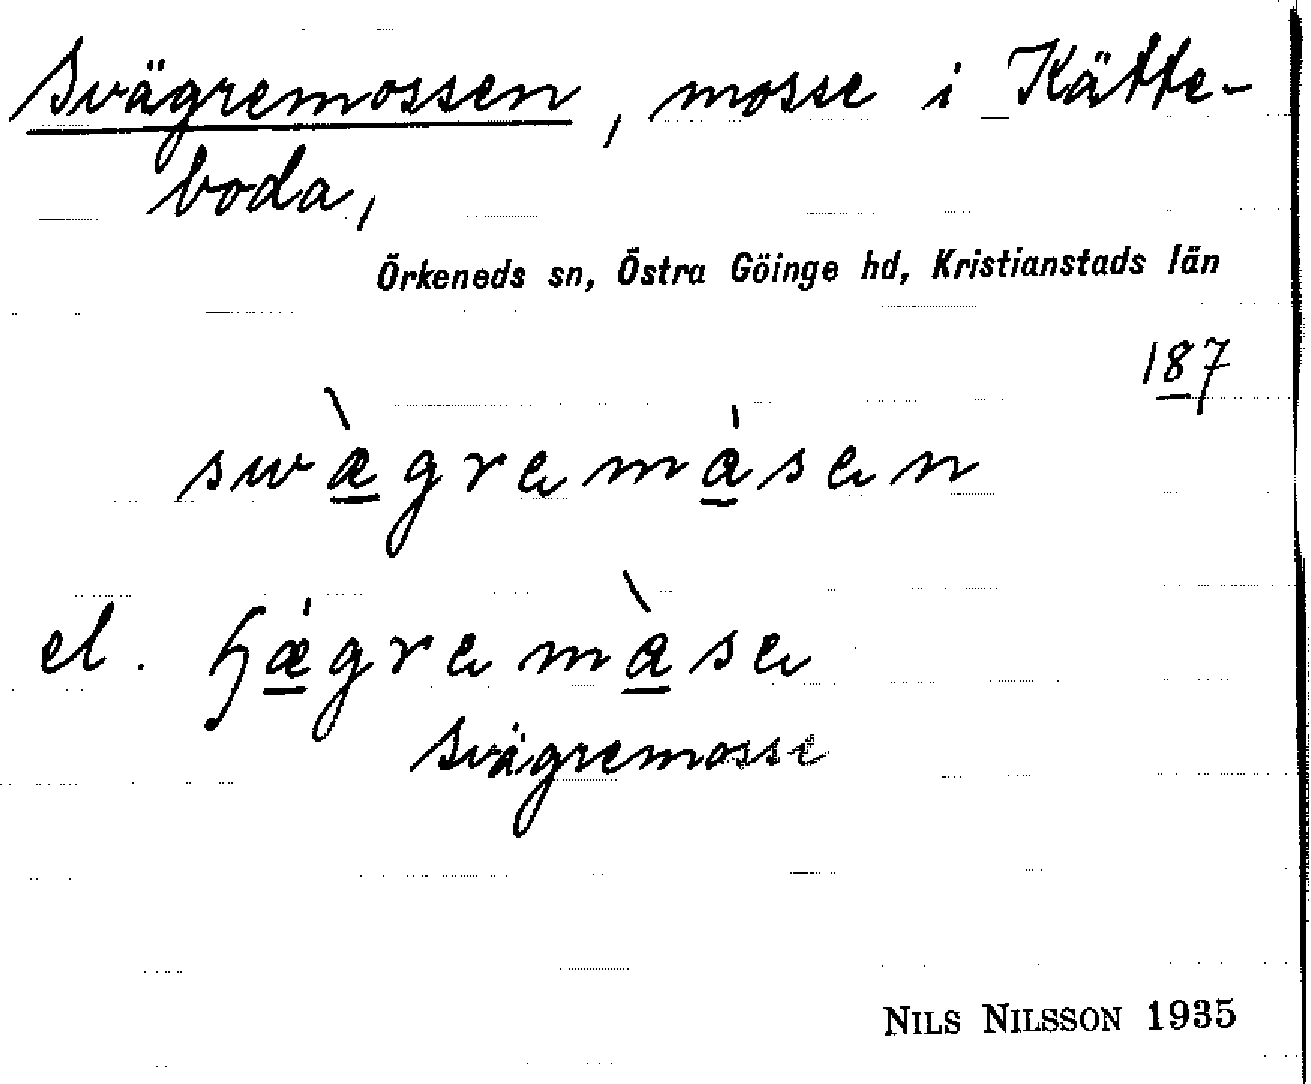 Svägremossen, mosse i Kätte-
boda,
Örkeneds sn, Östra Göinge hd, Kristianstads län
187
swæ̀gremȧsen
el. hæ̇gremàse
Svägremosse
NILS NILSSON 1935